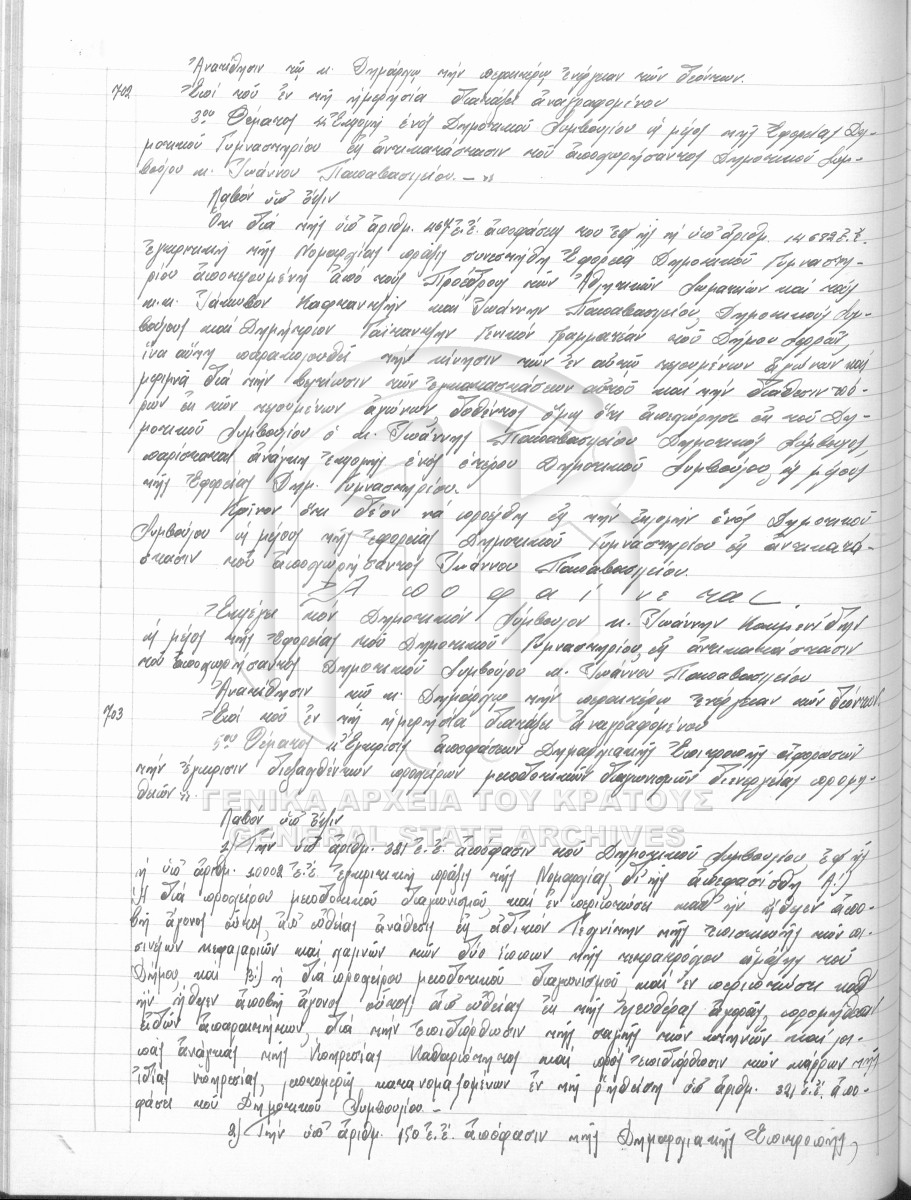 Ἀνατίθησιν τῷ κ. Δημάρχῳ τὴν περαιτέρω ἐνέργειαν τῶν δεόντων.
702 Ἐπὶ τοῦ ἐν τῇ ἡμερησίᾳ διατάξει ἀναγραφομένου
3ου Θέματος "Ἐκλογὴ ἑνὸς Δημοτικοῦ Συμβούλου ὡς μέλος τῆς Ἐφορείας Δη-
μοτικοῦ Γυμναστηρίου εἰς ἀντικατάστασιν τοῦ ἀποχωρήσαντος Δημοτικοῦ Συμ-
βούλου κ. Ἰωάννου Παπαβασιλείου.—"
Λαβὸν ὑπ' ὄψιν
Ὅτι διὰ τῆς ὑπ' ἀριθμ. ἐ.ἔ. ἀποφάσεώς του ἐφ' ἧς ἡ ὑπ' ἀριθμ. 14682 ἐ.ἔ.
ἐγκριτικὴ τῆς Νομαρχίας πρᾶξις συνεστήθη Ἐφορεία Δημοτικοῦ Γυμναστη-
ρίου ἀποτελουμένη ἀπὸ τοὺς Προέδρους τῶν Ἀθλητικῶν Σωματείων καὶ τοὺς
κ.κ. Ἰάκωβον καὶ Ἰωάννην Παπαβασιλείου, Δημοτικοὺς Συμ-
βούλους καὶ Δημήτριον Γενικὸν Γραμματέα τοῦ Δήμου Σερρῶν,
ἵνα αὕτη παρακολουθεῖ τὴν κίνησιν τῶν ἐν αὐτῷ τελουμένων ἀγώνων καὶ
μεριμνᾷ διὰ τὴν βελτίωσιν τῶν ἐγκαταστάσεων αὐτοῦ καὶ τὴν διάθεσιν πό-
ρων ἐκ τῶν τελουμένων ἀγώνων, δοθέντος ὅμως ὅτι ἀπεχώρησε ἐκ τοῦ Δη-
μοτικοῦ Συμβουλίου ὁ κ. Ἰωάννης Παπαβασιλείου Δημοτικὸς Σύμβουλος,
παρίσταται ἀνάγκη ἐκλογῆς ἑνὸς ἑτέρου Δημοτικοῦ Συμβούλου, ὡς μέλους
τῆς Ἐφορείας Δημ. Γυμναστηρίου.
Κρῖνον ὅτι δέον νὰ προέλθῃ εἰς τὴν ἐκλογὴν ἑνὸς Δημοτικοῦ
Συμβούλου ὡς μέλος τῆς Ἐφορείας Δημοτικοῦ Γυμναστηρίου εἰς ἀντικατά-
στασιν τοῦ ἀποχωρήσαντος Ἰωάννου Παπαβασιλείου.
Ἀ π ο φ α ί ν ε τ α ι
Ἐκλέγει τὸν Δημοτικὸν Σύμβουλον κ. Ἰωάννην
ὡς μέλος τῆς Ἐφορείας τοῦ Δημοτικοῦ Γυμναστηρίου, εἰς ἀντικατάστασιν
τοῦ ἀποχωρήσαντος Δημοτικοῦ Συμβούλου κ. Ἰωάννου Παπαβασιλείου
Ἀνατίθησιν τῷ κ. Δημάρχῳ τὴν περαιτέρω ἐνέργειαν τῶν δεόντων.
703 Ἐπὶ τοῦ ἐν τῇ ἡμερησίᾳ διατάξει ἀναγραφομένου
5ου Θέματος "Ἔγκρισις ἀποφάσεων Δημαρχιακῆς Ἐπιτροπῆς ἀφορωσῶν
τὴν ἔγκρισιν διεξαχθέντων προχείρων μειοδοτικῶν διαγωνισμῶν διενεργείας προμη-
θειῶν"
ΓΕΝΙΚΑ ΑΡΧΕΙΑ ΤΟΥ ΚΡΑΤΟΥΣ
GENERAL STATE ARCHIVES
Λαβὸν ὑπ' ὄψιν
1) Τὴν ὑπ' ἀριθμ. 321 ἐ.ἔ. ἀπόφασιν τοῦ Δημοτικοῦ Συμβουλίου ἐφ' ἧς
ἡ ὑπ' ἀριθμ. 20008 ἐ.ἔ. ἐγκριτικὴ πρᾶξις τῆς Νομαρχίας δι' ἧς ἀπεφασίσθη Α.)
Ἡ διὰ προχείρου μειοδοτικοῦ διαγωνισμοῦ, καὶ ἐν περιπτώσει καθ' ἣν ἤθελεν ἀπο-
βῇ ἄγονος οὗτος ἀπ' εὐθείας ἀνάθεσις εἰς εἰδικὸν Τεχνίτην τῆς ἐπισκευῆς τῶν
τῶν δύο ἵππων τῆς τετρατρόχου ἁμάξης τοῦ
Δήμου, καὶ Β) ἡ διὰ προχείρου μειοδοτικοῦ διαγωνισμοῦ, καὶ ἐν περιπτώσει καθ'
ἣν ἤθελεν ἀποβῇ ἄγονος οὗτος ἀπ' εὐθείας ἐκ τῆς ἐλευθέρας ἀγορᾶς, προμήθεια
εἰδῶν ἀπαραιτήτων, διὰ τὴν ἐπιδιόρθωσιν τῆς σαγῆς τῶν κτηνῶν καὶ λοι-
πὰς ἀνάγκας τῆς Ὑπηρεσίας Καθαριότητος καὶ πρὸς ἐπιδιόρθωσιν τῶν κάρρων τῆς
ἰδίας ὑπηρεσίας, κατονομαζομένων ἐν τῇ ρηθείσῃ ὑπ' ἀριθμ. 321 ἐ.ἔ. ἀπο-
φάσει τοῦ Δημοτικοῦ Συμβουλίου.—
2) Τὴν ὑπ' ἀριθμ. 150 ἐ.ἔ. ἀπόφασιν τῆς Δημαρχιακῆς Ἐπιτροπῆς,